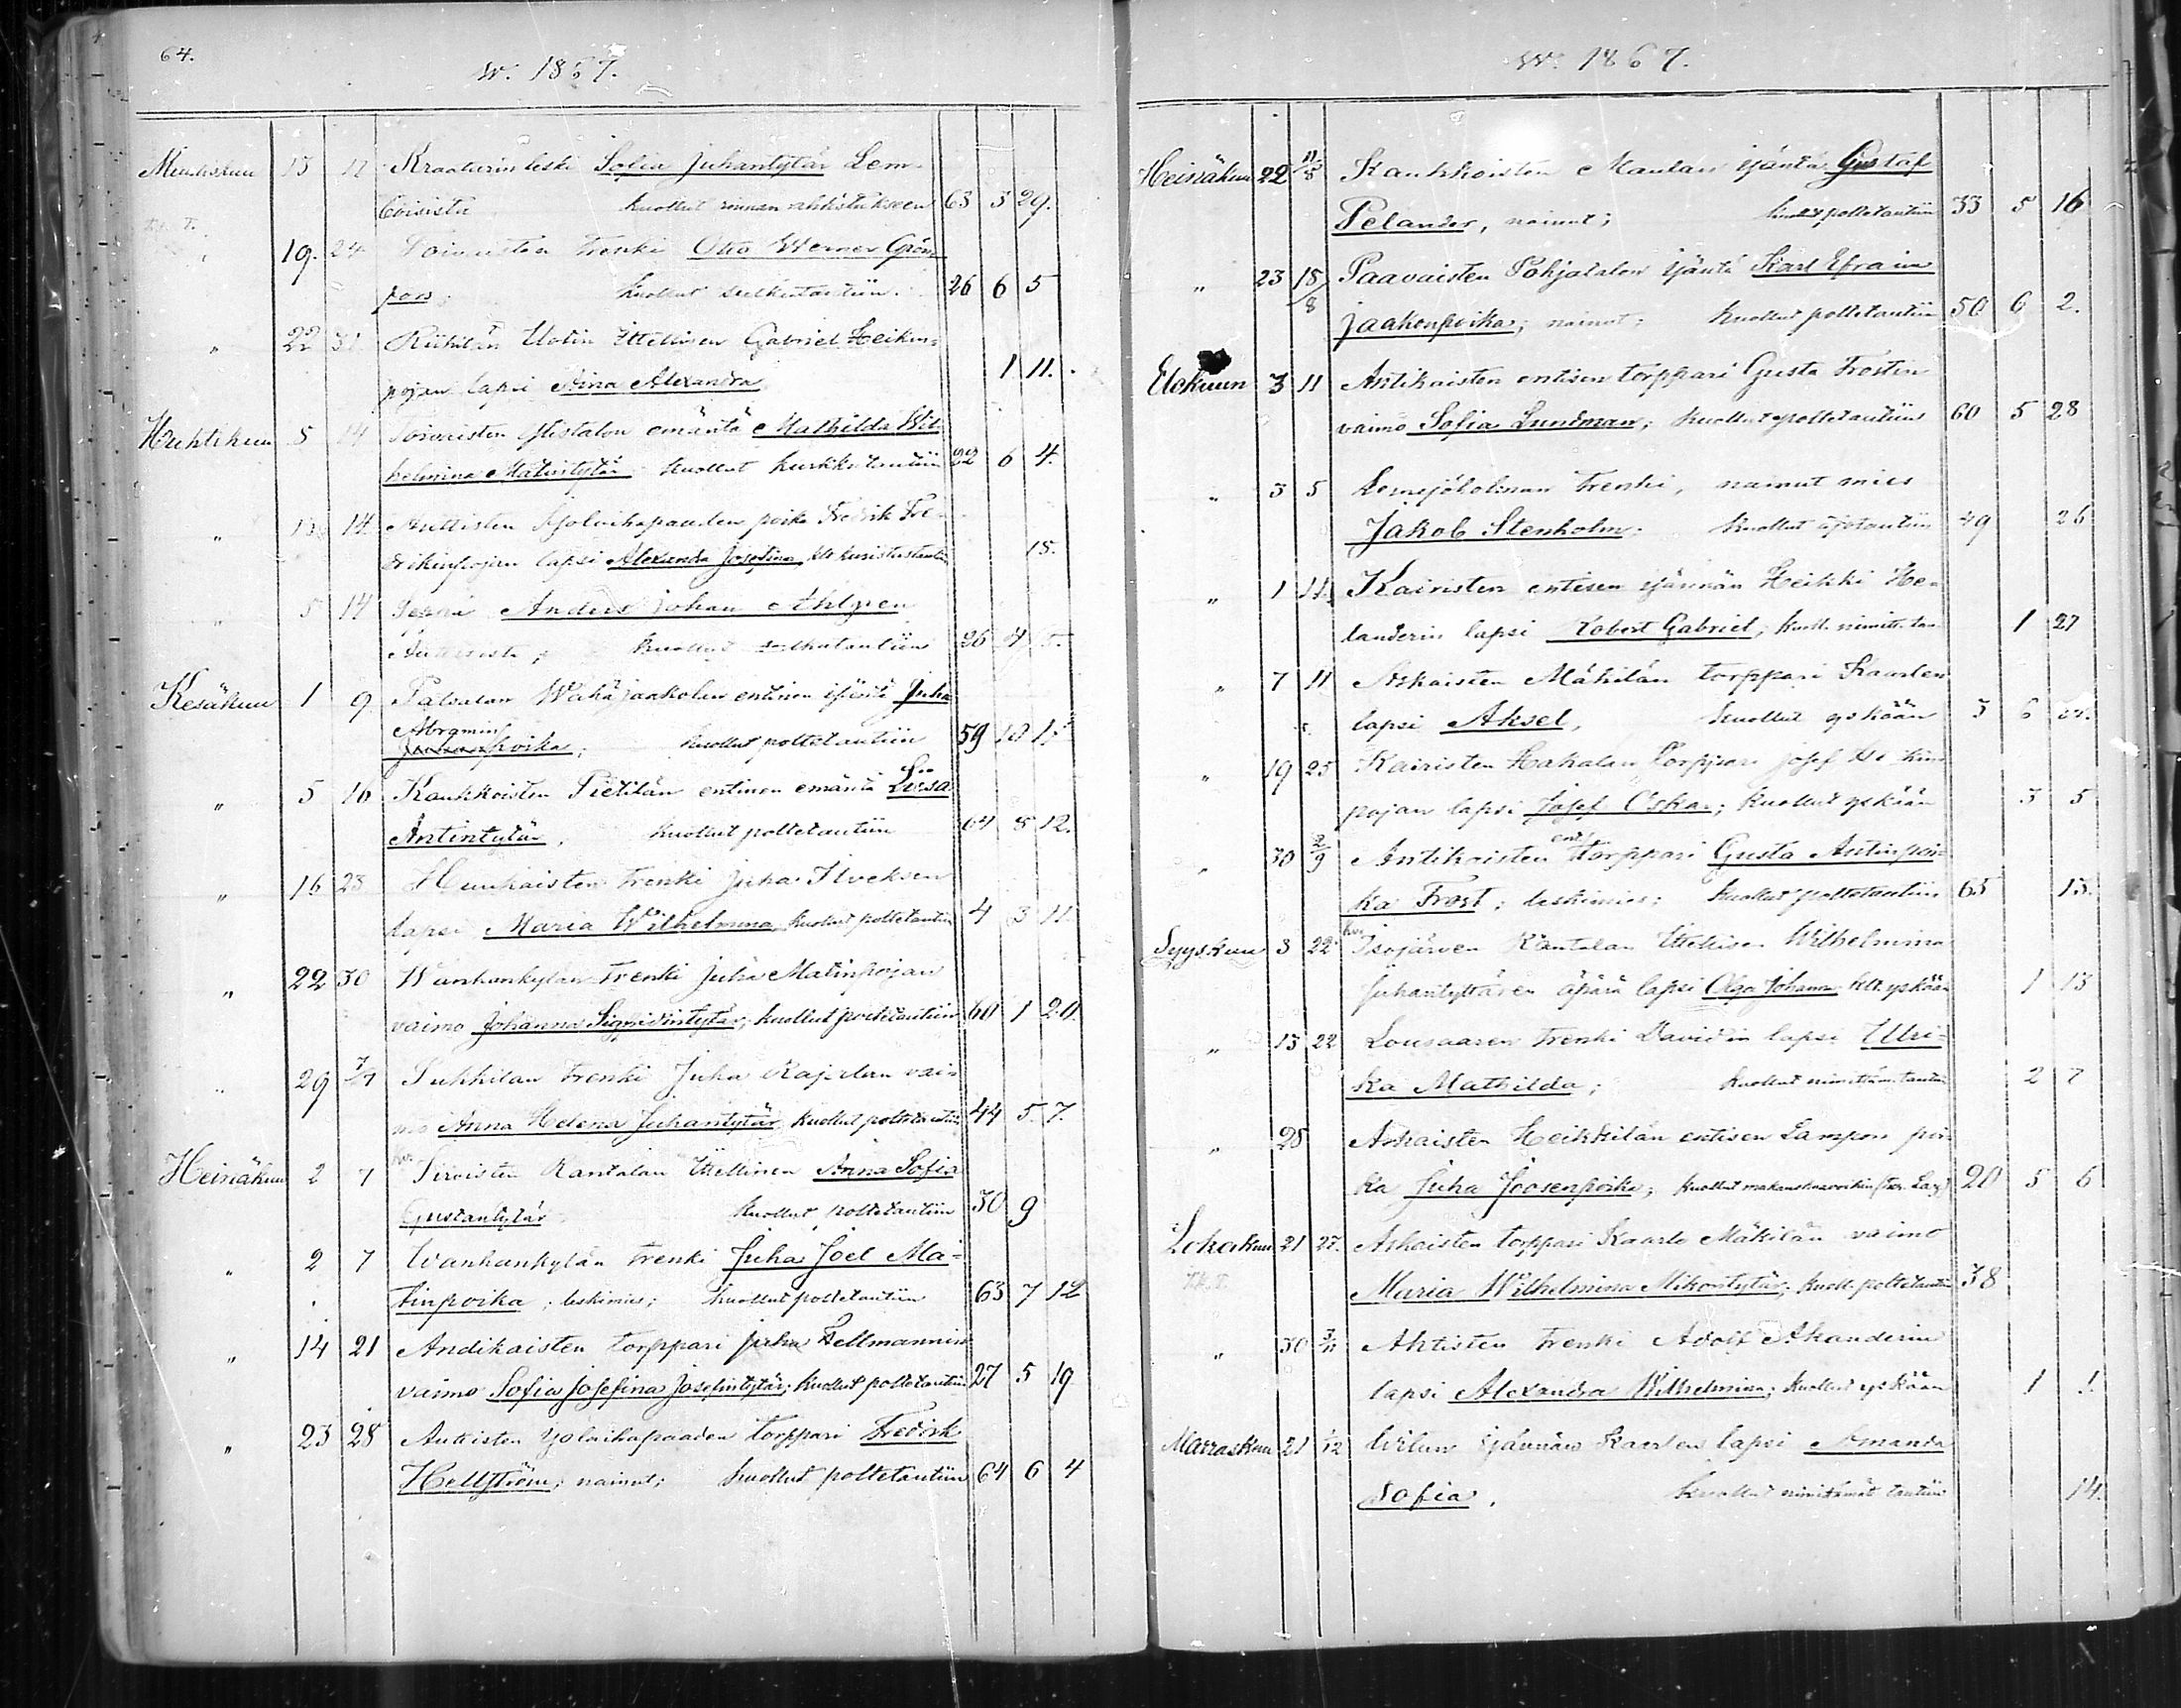 64.
w. 1867.
13 Kraaturin leski Sofia Juhantytär Lem-
boisista kuollut rinnan ahdistukseen 63 3 29.
" 19. 24 Toivaisten trenki Otto Werner Grön-
kuollut 26 6 5
" 22 31 Riihilän Uotin Ittellisen Gabriel Heikin-
pojan lapsi Aina Alexandra 1 11.
Huhtikuu 5 14 emäntä Mathilda Wil-
helmina Matintytär kuollut kurkku tautiin 22 6 4.
" 14. poika Fredrik Fre-
drikinpojan lapsi Alexandra Josefina 15.
" 5 14 Anders Johan Ahlgren
kuollut 26 4
Kesäkuu 1 9. Wähäjaakolan entinen isäntä Juha
Abramin
poika; kuollut poltetautiin 59 10
" 5 16 Kankkoisten Pietilän entinen emäntä Liisa
Antintytär, kuollut poltetautiin 64 8 12.
" 16 23 trenki Juha
lapsi Maria Wilhelmina, kuollut poltetautiin 4 3 11.
" 22 30 Wanhankylän trenki Juha Matinpojan
vaimo Johanna Sigfridintytär; kuollut poltetautiin 60 1 20.
" 29 7/7 trenki Juha Rajalan vai-
mo Anna Helena Juhantytär kuollut poltetautiin 44 5. 7.
Heinäkuu 2 7 Kantalan Ittellinen Anna Sofia
Gustantytär kuollut poltetautiin 30 9
" 2 7 Wanhankylän trenki Juha Joel Ma-
tinpoika; leskimies; kuollut poltetautiin 63 7 12
" 14 21 Andikaisten torppari Juha Hellmannin
vaimo Sofia Josefina Josefintytär; kuollut poltetautiin 27 5 19
" 23 28 Auttisten torppari Fredrik
Hellström; nainut; kuollut poltetautiin 64 6 4
w. 1867.
Heinäkuu 22 11/8 Kankkoisten Maulan isäntä Gustaf
Pelander, nainut; kuollut poltetautiin 33 5 16
" 23 18/8 Paavaisten Pohjatalon isäntä Karl Efraim
Jaakonpoika; nainut; kuollut poltetautiin 50 6 2.
Elokuun 3 11 Antikaisten entisen torppari Gusta Frostin
vaimo Sofia Lundman; kuollut poltetautiin 60 5 28
" 3 5 trenki, nainut mies
Jakob Stenholm; kuollut 49 26
" 1 11. Kairisten entisen isännän Heikki He-
landerin lapsi Robert Gabriel; kuoll. nimitt. tau 1 27
" 7 11 Askaisten Mäkilän torppari Kaarlen
lapsi Aksel, kuollut yskään 3 6
" 19 25 Kairisten Hakalan torppari Josef
pojan lapsi Josef Oskar; kuollut yskään 3 5
" 30 2/9 Antikaisten ent. torppari Gusta Antinpoi-
ka Frost; leskimies; kuollut poltetautiin 65 13.
Syyskuu 3 22 Isojärven Rantalan Ittellisen Wilhelmina
Juhantyttären äpärä lapsi Olga Johanna kll. yskään 1 13
" 15 22 Lousaaren trenki Davidin lapsi Ulri-
ka Mathilda; kuollut nimittäm. tautiin 2 7
" 28 Askaisten Heikkilän entisen Lampon poi-
ka Juha Joosenpoika; 20 5 6
Lokakuu 21 27. Askaisten torppari Kaarle Mäkilän vaimo
Maria Wilhelmina Mikontytär; kuoll. poltetautiin 38
" 30 3/11 Ahtisten trenki Adolf Akanderin
lapsi Alexandra Wilhelmina; kuollut yskään 1 1.
Marraskuu 21 1/12 isännän Kaarlen lapsi Amanda
Sofia. kuollut nimittämät. tautiin 14.